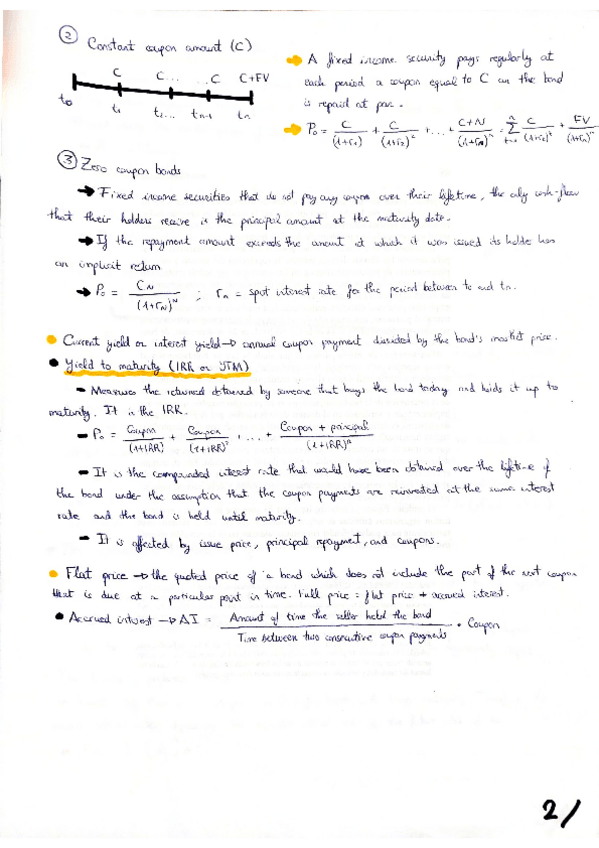 ② Constant coupon amount (C)
C C... ...C C+FV
t₀ t₁ t... tn-1 tn
→ A fixed income security pays regularly at
each period a coupon equal to C an the bond
is repaid at par.
→ P₀ = C/(1+r₁) + C/(1+r₂)² + ... + C+N/(1+rN)ᴺ = Σ C/(1+rt)ᵗ + FV/(1+rn)ⁿ
③ Zero coupon bonds
→ Fixed income securities that do not pay any coupons over their lifetime, the only cash-flow
that their holders receive is the principal amount at the maturity date.
→ If the repayment amount exceeds the amount at which it was issued its holder has
an implicit return
→ P₀ = CN/(1+rN)ᴺ ; rn = spot interest rate for the period between to and tn.
• Current yield or interest yield → annual coupon payment divided by the bond's market price.
• Yield to maturity (IRR or YTM)
- Measures the returned obtained by someone that buys the bond today and holds it up to
maturity. It is the IRR.
- P₀ = Coupon/(1+IRR) + Coupon/(1+IRR)² + ... + Coupon + principal/(1+IRR)ⁿ
- It is the compounded interest rate that would have been obtained over the lifetime of
the bond under the assumption that the coupon payments are reinvested at the same interest
rate and the bond is held until maturity.
- It is affected by issue price, principal repayment, and coupons.
• Flat price → the quoted price of a bond which does not include the part of the next coupon
that is due at a particular point in time. Full price = flat price + accrued interest.
• Accrued interest → AI = Amount of time the seller held the bond/Time between two consecutive coupon payments • Coupon
2/